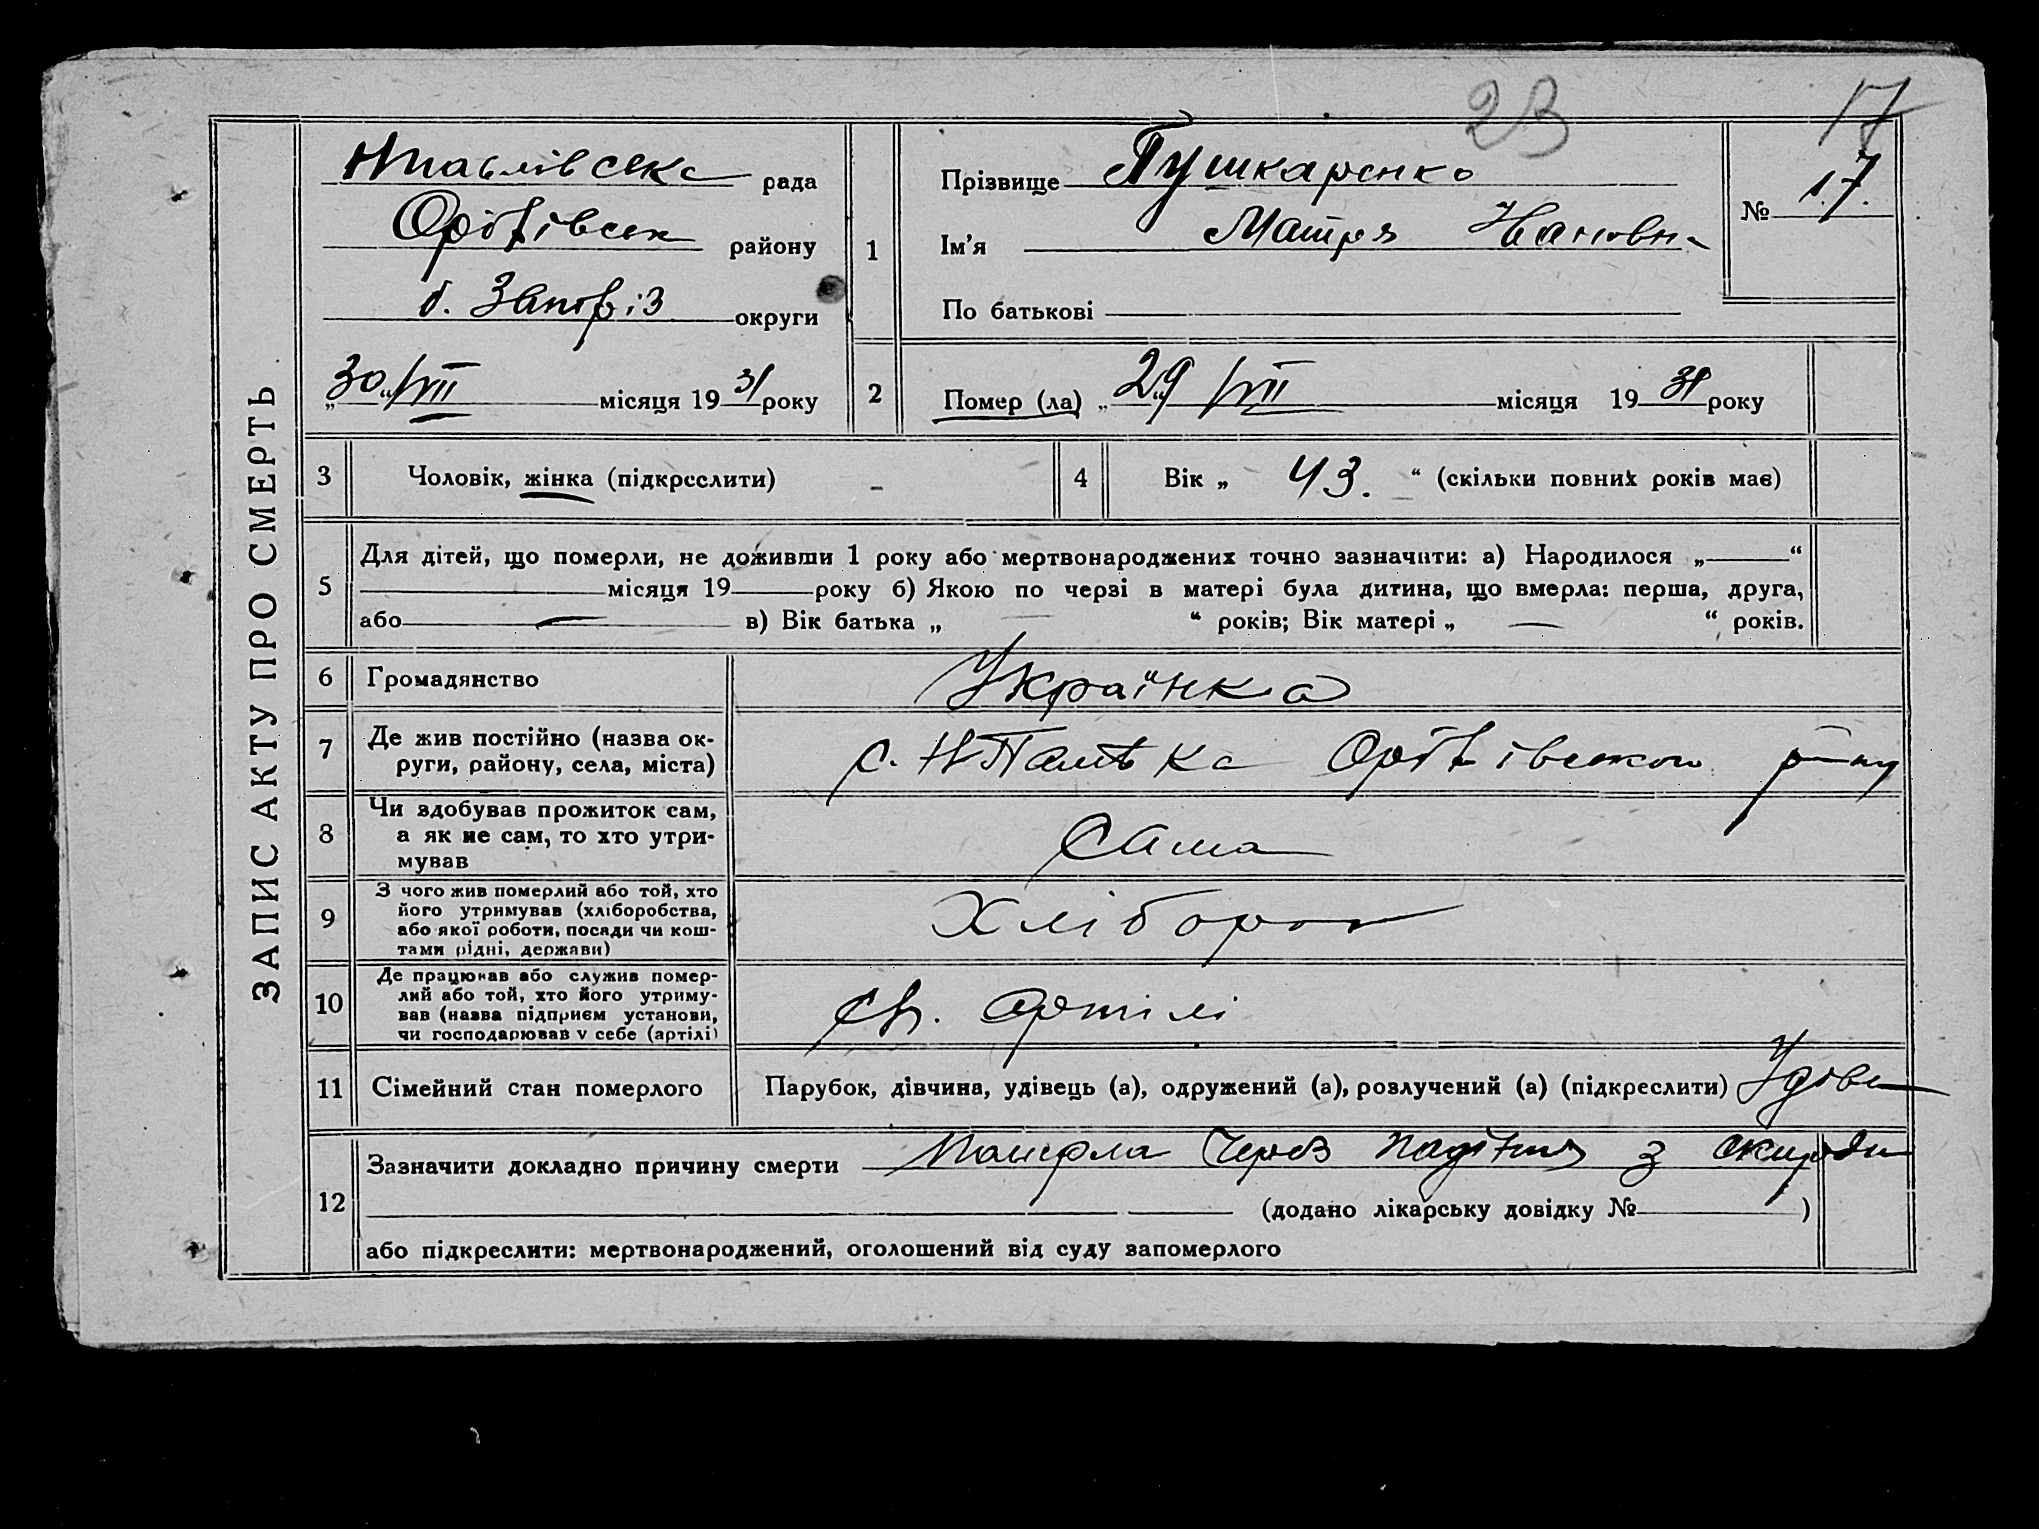 23
17
ЗАПИС АКТУ ПРО СМЕРТЬ
Нпавлівська рада
Оріхівськ району
б. Запоріз округи
„30“/VII місяця 1931 року
1
Прізвище Пушкаренко
Ім’я Мотря Івановна
По батькові
№ 17.
2
Помер (ла) „29“ /VII місяця 1931 року
3 Чоловік, жінка (підкреслити) –
4 Вік „ 43. “ (скільки повних років має)
5 Для дітей, що померли, не доживши 1 року або мертвонароджених точно зазначити: а) Народилося „——“
місяця 19 року б) Якою по черзі в матері була дитина, що вмерла: перша, друга,
або — в) Вік батька „ — “ років; Вік матері „ — “ років.
6 Громадянство Українка
7 Де жив постійно (назва ок-
руги, району, села, міста) с. НПавлівка Оріхівського р-ну
8 Чи здобував прожиток сам,
а як не сам, то хто утри-
мував Сама
9 З чого жив померлий або той, хто
його утримував (хліборобства,
або якої роботи, посади чи кош-
тами рідні, держави) Хлібороб
10 Де працював або служив помер-
лий або той, хто його утриму-
вав (назва підприєм установи,
чи господарював у себе (артілі) артілі
11 Сімейний стан померлого Парубок, дівчина, удівець (а), одружений (а), розлучений (а) (підкреслити) Удова
12 Зазначити докладно причину смерти Померла через падіння з скирди
(додано лікарську довідку № )
або підкреслити: мертвонароджений, оголошений від суду запомерлого